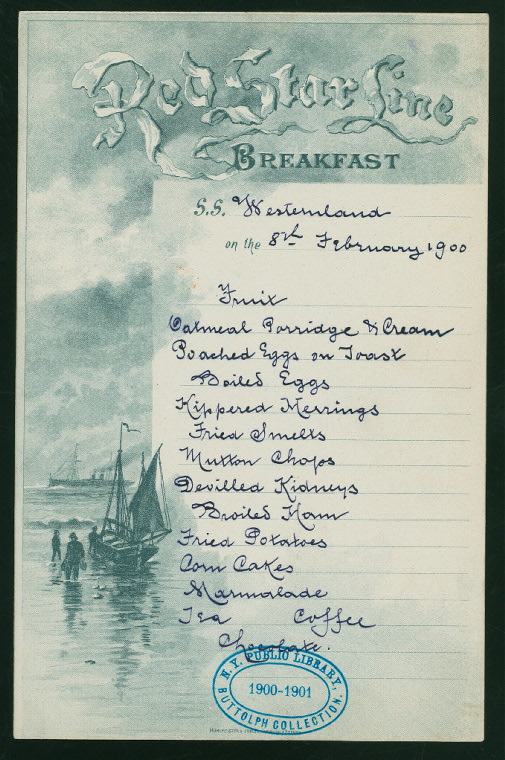 Red Star Line
BREAKFAST
S.S. Westernland
on the 8th February 1900
Fruit
Oatmeal Porridge & Cream
Poached Eggs on Toast
Boiled Eggs
Kippered Herrings
Fried Smelts
Mutton Chops
Devilled Kidneys
Broiled Ham
Fried Potatoes
Corn Cakes
Marmalade
Tea Coffee
Chocolate.
N.Y. PUBLIC LIBRARY,
1900-1901
BUTTOLPH COLLECTION.